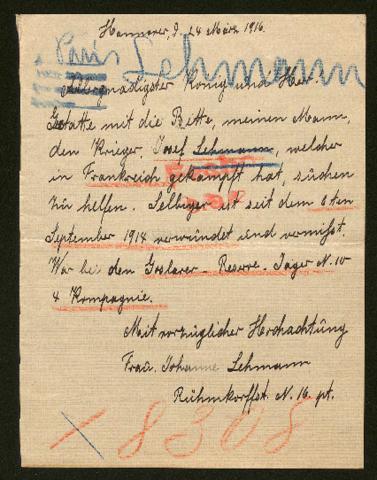 Hannover, d. 24 März 1916.
Paris Lehmann
Allergnädigster König und Herr
Gestatte mit die Bitte, meinen Mann,
den Krieger, Josef Lehmann, welcher
in Frankreich gekämpft hat, suchen
zu helfen. Selbiger ist seit dem 6ten
September 1914 verwundet und vermisst.
War bei dem Goslarer-Reserve-Jäger N. 10
4 Kompagnie.
Mit vorzüglicher Hochachtung
Frau. Johanne Lehmann
Rühmkorffst. N. 16 pt.
8308